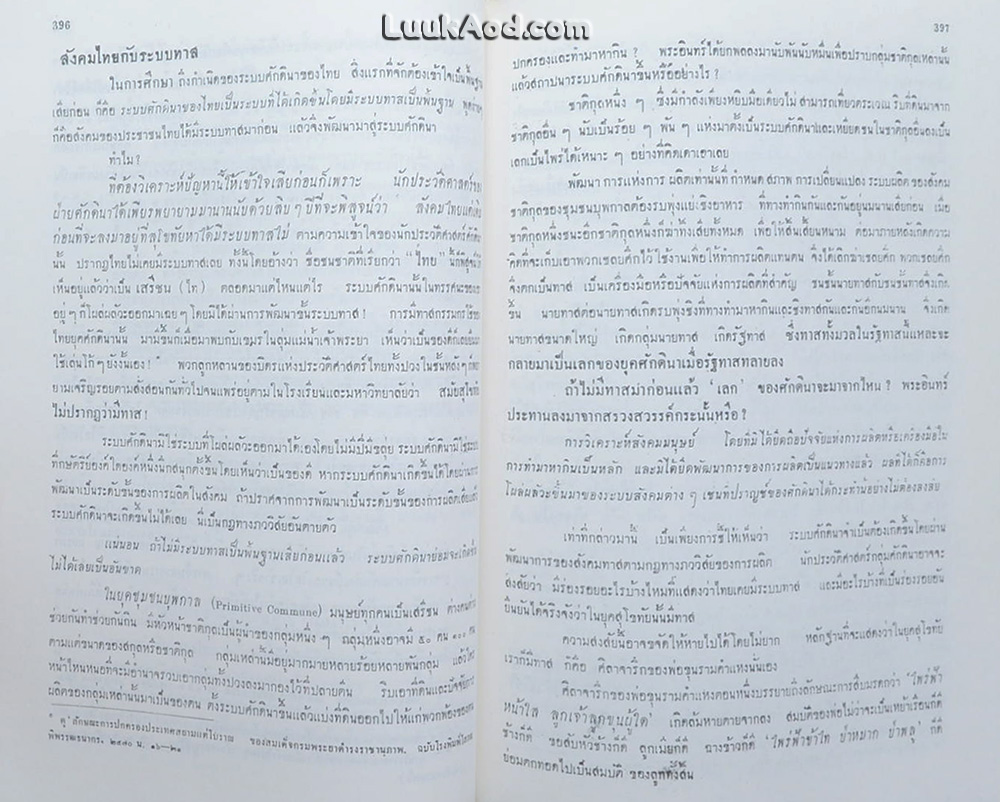 396
LuukAod.com
สังคมไทยกับระบบทาส
ในการศึกษา ถึงกำเนิดของระบบศักดินาของไทย สิ่งแรกที่จักต้องเข้าใจเป็นพื้นฐาน
เสียก่อน ก็คือ ระบบศักดินาของไทยเป็นระบบที่ได้เกิดขึ้นโดยมีระบบทาสเป็นพื้นฐาน
ก็คือสังคมของประชาชนไทยได้มีระบบทาสมาก่อน แล้วจึงพัฒนามาสู่ระบบศักดินา
ทำไม?
ที่ต้องวิเคราะห์ปัญหานี้ให้เข้าใจเสียก่อนก็เพราะ นักประวัติศาสตร์ของ
ฝ่ายศักดินาได้เพียรพยายามมานานนับด้วยสิบ ๆ ปีที่จะพิสูจน์ว่า สังคมไทยแต่เดิม
ก่อนที่จะลงมาอยู่ที่สุโขทัยหาได้มีระบบทาสไม่ ตามความเข้าใจของนักประวัติศาสตร์ศักดินา
นั้น ปรากฏไทยไม่เคยมีระบบทาสเลย ทั้งนี้โดยอ้างว่า ชื่อชนชาติที่เรียกว่า "ไทย"
เห็นอยู่แล้วว่าเป็น เสรีชน (ไท) ตลอดมาแต่ไหนแต่ไร ระบบศักดินานั้นในทรรศนะของ
อยู่ ๆ ก็โผล่ผลัวะออกมาเฉย ๆ โดยมิได้ผ่านการพัฒนาขั้นระบบทาส! การมีทาสกรรมกรใช้ของ
ไทยยุคศักดินานั้น มามีขึ้นก็เมื่อมาพบกับเขมรในลุ่มแม่น้ำเจ้าพระยา เห็นว่าเป็นของดีก็เลย
ใช้เล่นโก้ ๆ ยังงั้นเอง!* พวกลูกหลานของบิดาแห่งประวัติศาสตร์ไทยทั้งปวงในชั้นหลัง ๆ
ยามเจริญรอยตามสั่งสอนกันทั่วไปจนแพร่อยู่ตามในโรงเรียนและมหาวิทยาลัยว่า สมัยสุโขทัย
ไม่ปรากฏว่ามีทาส!
ระบบศักดินามิใช่ระบบที่โผล่ผลัวะออกมาได้เองโดยไม่มีปี่มีขลุ่ย ระบบศักดินามิใช่ระบบ
ที่กษัตริย์องค์ใดองค์หนึ่งนึกสนุกตั้งขึ้นโดยเห็นว่าเป็นของดี หากระบบศักดินาเกิดขึ้นได้โดยผ่านการ
พัฒนาเป็นระดับขั้นของการผลิตในสังคม ถ้าปราศจากการพัฒนาเป็นระดับขั้นของการผลิตเสียแล้ว
ระบบศักดินาจะเกิดขึ้นไม่ได้เลย นี่เป็นกฎทางภววิสัยอันตายตัว
แน่นอน ถ้าไม่มีระบบทาสเป็นพื้นฐานเสียก่อนแล้ว ระบบศักดินาย่อมจะเกิดขึ้น
ไม่ได้เลยเป็นอันขาด
ในยุคชุมชนบุพกาล (Primitive Commune) มนุษย์ทุกคนเป็นเสรีชน ต่างคนต่าง
ช่วยกันทำช่วยกันกิน มีหัวหน้าชาติกุลเป็นผู้นำของกลุ่มหนึ่ง ๆ กลุ่มหนึ่งอาจมี ๕๐ คน ๑๐๐ คน
ตามแต่ขนาดของสกุลหรือชาติกุล กลุ่มเหล่านี้มีอยู่มากมายหลายร้อยหลายพันกลุ่ม แล้วใคร
หน้าไหนหนอที่จะมีอำนาจรวบเอากลุ่มทั้งปวงลงมากองไว้ที่ปลายตีน ริบเอาที่ดินและปัจจัยการ
ผลิตของกลุ่มเหล่านั้นมาเป็นของตน ตั้งระบบศักดินาขึ้นแล้วแบ่งที่ดินออกไปให้แก่พวกพ้องของตน
* ดู ‘ลักษณะการปกครองประเทศสยามแต่โบราณ’ ของสมเด็จกรมพระยาดำรงราชานุภาพ, ฉบับโรงพิมพ์
พิพรรฒธนากร, ๒๔๗๐ น. ๑๖—๒๐
397
ปกครองและทำมาหากิน? พระอินทร์ได้ยกพลลงมานับพันนับหมื่นเพื่อปราบกลุ่มชาติกุลเหล่านั้น
แล้วสถาปนาระบบศักดินาขึ้นหรืออย่างไร?
ชาติกุลหนึ่ง ๆ ซึ่งมีกำลังเพียงหยิบมือเดียวไม่สามารถเที่ยวตระเวณ ริบที่ดินมาจาก
ชาติกุลอื่น ๆ นับเป็นร้อย ๆ พัน ๆ แห่งมาตั้งเป็นระบบศักดินาและเหยียดชนในชาติกุลอื่นลงเป็น
เลกเป็นไพร่ได้เหนาะ ๆ อย่างที่คิดเดาเอาเลย
พัฒนาการแห่งการ ผลิตเท่านั้นที่ กำหนด สภาพ การเปลี่ยนแปลง ระบบผลิต ของสังคม
ชาติกุลของชุมชนบุพกาลต้องรบพุ่งแย่งชิงอาหาร ที่ทางทำกินกันและกันอยู่นมนานเสียก่อน เมื่อ
ชาติกุลหนึ่งชนะอีกชาติกุลหนึ่งก็ฆ่าทิ้งเสียทั้งหมด เพื่อให้สิ้นเสี้ยนหนาม ต่อมาภายหลังเกิดความ
คิดที่จะเก็บเอาพวกเชลยศึกไว้ ใช้งานเพื่อให้ทำการผลิตแทนตน จึงได้เลิกฆ่าเชลยศึก พวกเชลยศึก
จึงตกเป็นทาส เป็นเครื่องมือหรือปัจจัยแห่งการผลิตที่สำคัญ ชนชั้นนายทาสกับชนชั้นทาสจึงเกิด
ขึ้น นายทาสต่อนายทาส เกิดรบพุ่งชิงที่ทางทำมาหากินและชิงทาสกันและกันอีกนมนาน จึงเกิด
นายทาสขนาดใหญ่ เกิดกลุ่มนายทาส เกิดรัฐทาส ซึ่งทาสทั้งมวลในรัฐทาสนี้แหละจะ
กลายมาเป็นเลกของยุคศักดินาเมื่อรัฐทาสทลายลง
ถ้าไม่มีทาสมาก่อนแล้ว ‘เลก’ ของศักดินาจะมาจากไหน? พระอินทร์
ประทานลงมาจากสรวงสวรรค์กระนั้นหรือ?
การวิเคราะห์สังคมมนุษย์ โดยที่มิได้ยึดถือปัจจัยแห่งการผลิตหรือเครื่องมือใน
การทำมาหากินเป็นหลัก และมิได้ยึดพัฒนาการของการผลิตเป็นแนวทางแล้ว ผลที่ได้ก็คือการ
โผล่ผลัวะขึ้นมาของระบบสังคมต่าง ๆ เช่นที่ปราชญ์ของศักดินาได้กระทำอย่างไม่ต้องสงสัย
เท่าที่กล่าวมานี้ เป็นเพียงการชี้ให้เห็นว่า ระบบศักดินาจำเป็นต้องเกิดขึ้นโดยผ่าน
พัฒนาการของสังคมทาสตามกฎทางภววิสัยของการผลิต นักประวัติศาสตร์กลุ่มศักดินาอาจจะ
สงสัยว่า มีร่องรอยอะไรบ้างไหมที่แสดงว่าไทยเคยมีระบบทาส และมีอะไรบ้างที่เป็นร่องรอยอัน
ยืนยันได้จริงจังว่าในยุคสุโขทัยนั้นมีทาส
ความสงสัยนี้อาจขจัดให้หายไปได้โดยไม่ยาก หลักฐานที่จะแสดงว่าในยุคสุโขทัย
เราก็มีทาส ก็คือ ศิลาจารึกของพ่อขุนรามคำแหงนั่นเอง
ศิลาจารึกของพ่อขุนรามคำแหงตอนหนึ่งบรรยายถึงลักษณะการสืบมรดกว่า ‘ไพร่ฟ้า
หน้าใส ลูกเจ้าลูกขุนผู้ใด’ เกิดล้มหายตายจากลง สมบัติของพ่อไม่ว่าจะเป็นเหย้าเรือนก็ดี
ช้างก็ดี ขอสับหัวช้างก็ดี ลูกเมียก็ดี ฉางข้าวก็ดี ‘ไพร่ฟ้าข้าไท ป่าหมาก ป่าพลู’ ก็ดี
ย่อมตกทอดไปเป็นสมบัติ ของลูกทั้งสิ้น